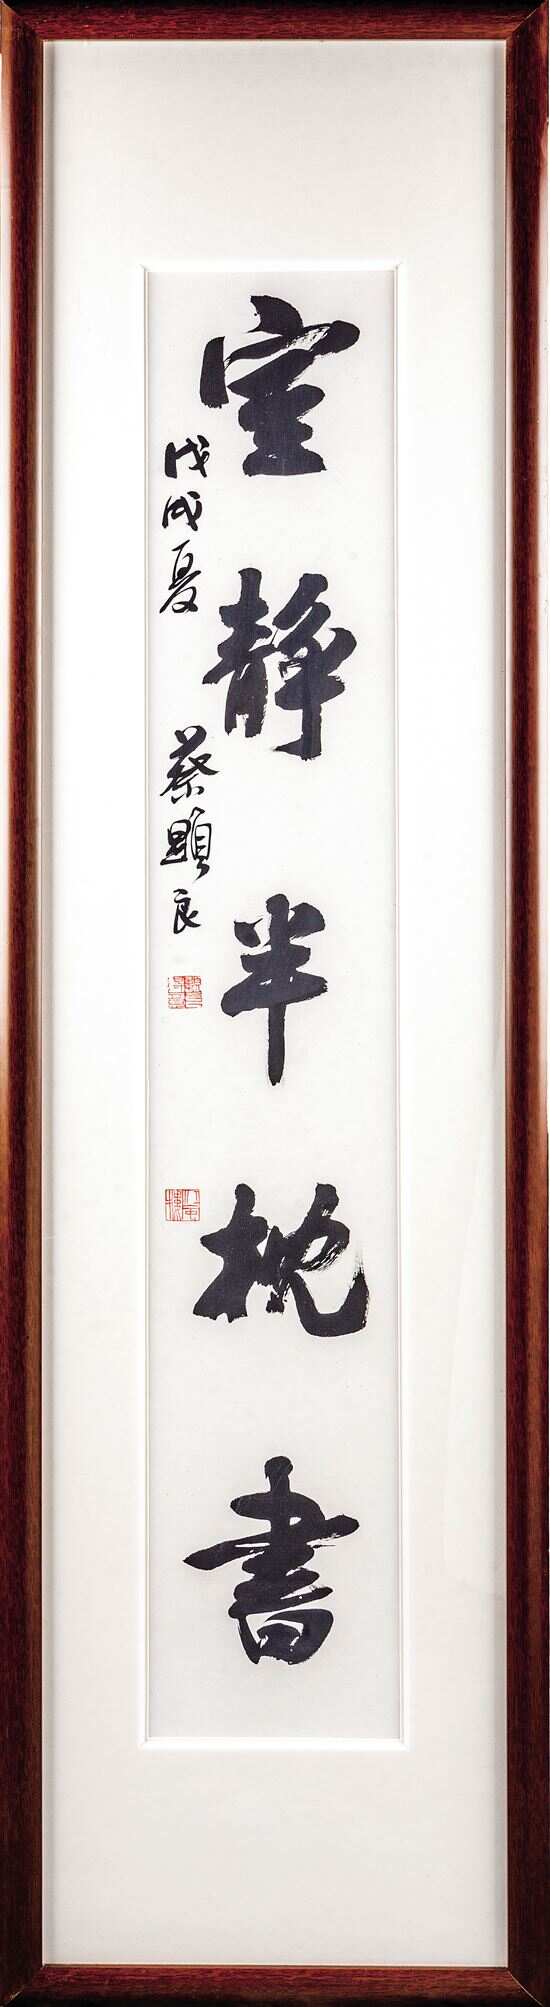 室静半枕書
戊戌夏 蔡顯良